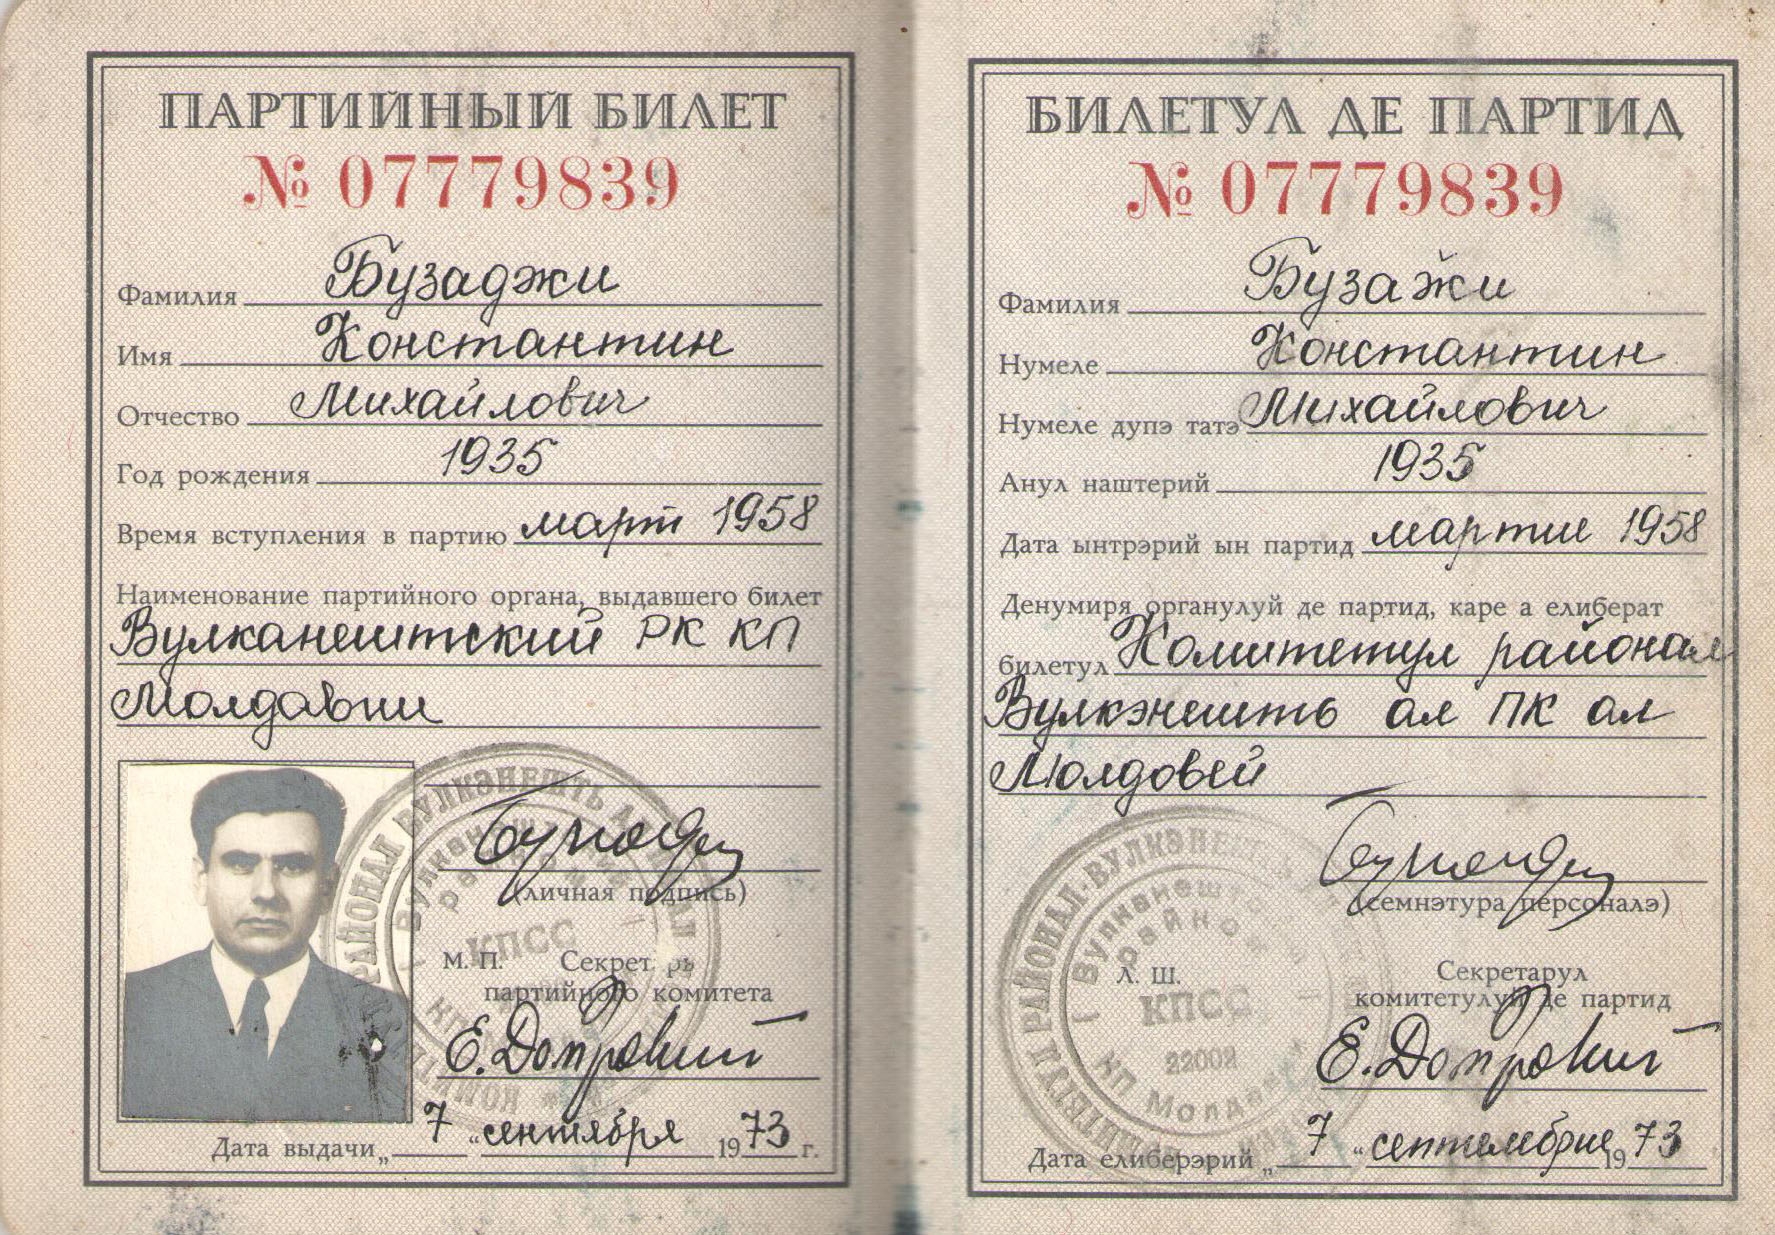 ПАРТИЙНЫЙ БИЛЕТ
№ 07779839
Фамилия Бузаджи
Имя Константин
Отчество Михайлович
Год рождения 1935
Время вступления в партию март 1958
Наименование партийного органа, выдавшего билет
Вулканештский РК КП
Молдавии
(личная подпись)
М. П. Секретарь
партийного комитета
Дата выдачи „ 7 “ сентября 1973 г.
РАЙОНАЛ ВУЛКЭНЕШТЬ
КПСС
БИЛЕТУЛ ДЕ ПАРТИД
№ 07779839
Фамилия Бузаӂи
Нумеле Константин
Нумеле дупэ татэ Михайлович
Анул наштерий 1935
Дата ынтрэрий ын партид мартие 1958
Денумиря органулуй де партид, каре а елиберат
билетул Комитетул районал
Вулкэнешть ал ПК ал
Молдовей
(семнэтура персоналэ)
Л. Ш. Секретарул
комитетулуй де партид
Дата елиберэрий „ 7 “ септембрие 1973
КОМИТЕТУЛ РАЙОНАЛ ВУЛКЭНЕШТЬ
КПСС
22002
КП Молдавии